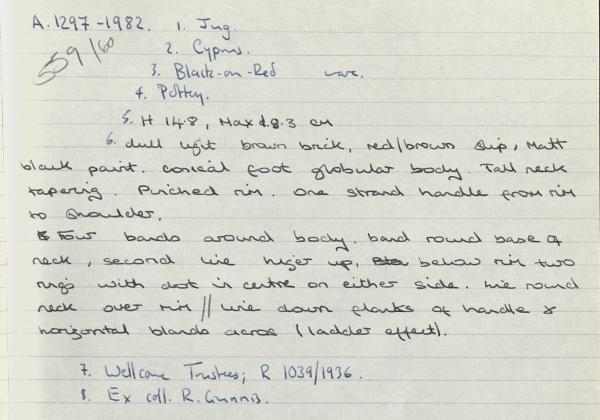 A.1297-1982. 1. Jug.
559/60
2. Cyprus.
3. Black-on-Red ware.
4. Pottery.
5. H 14.8, Max d. 8.3 cm
6. dull light brown brick, red/brown slip, Matt
black paint. conical foot globular body. Tall neck
tapering. Pinched rim. One strand handle from rim
to shoulder.
Four bands around body. band round base of
neck, second line higer up, below rim two
rings with dot in centre on either side. line round
neck over rim // line down flanks of handle &
horizontal blands across (ladder effect).
7. Wellcome Trustees; R 1039/1936.
8. Ex coll. R. Gunnis.